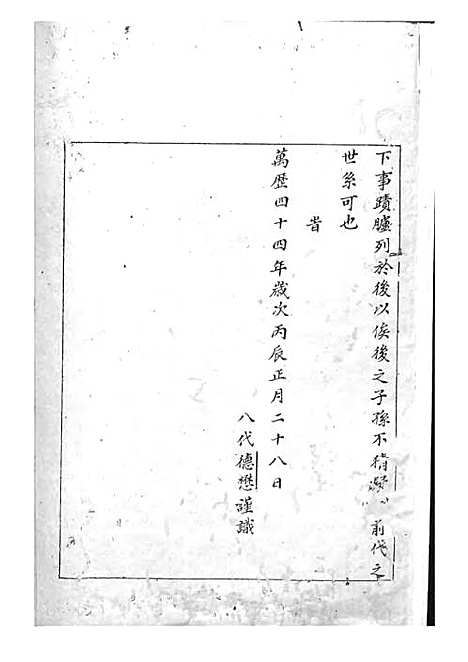 下事蹟臚列於後以俟後之子孫不前代之
世系可也
旹
萬歷四十四年歲次丙辰正月二十八日
八代德懋謹識